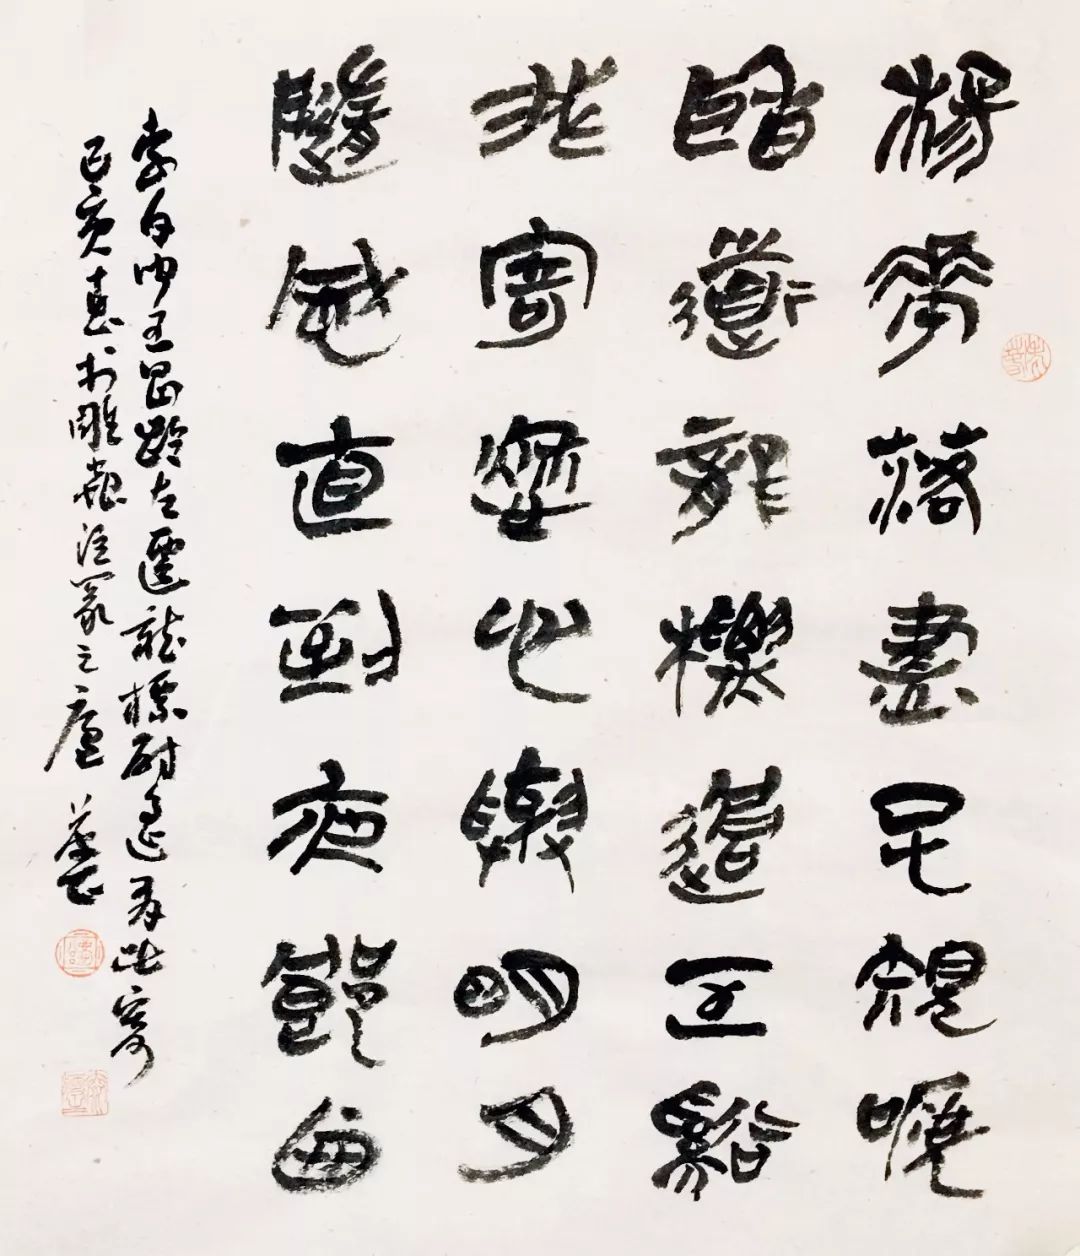 楊花落盡子規啼
聞道龍標過五谿
我寄愁心與明月
隨風直到夜郎西
李白聞王昌齡左遷龍標尉遙有此寄
己亥春於雕之廬